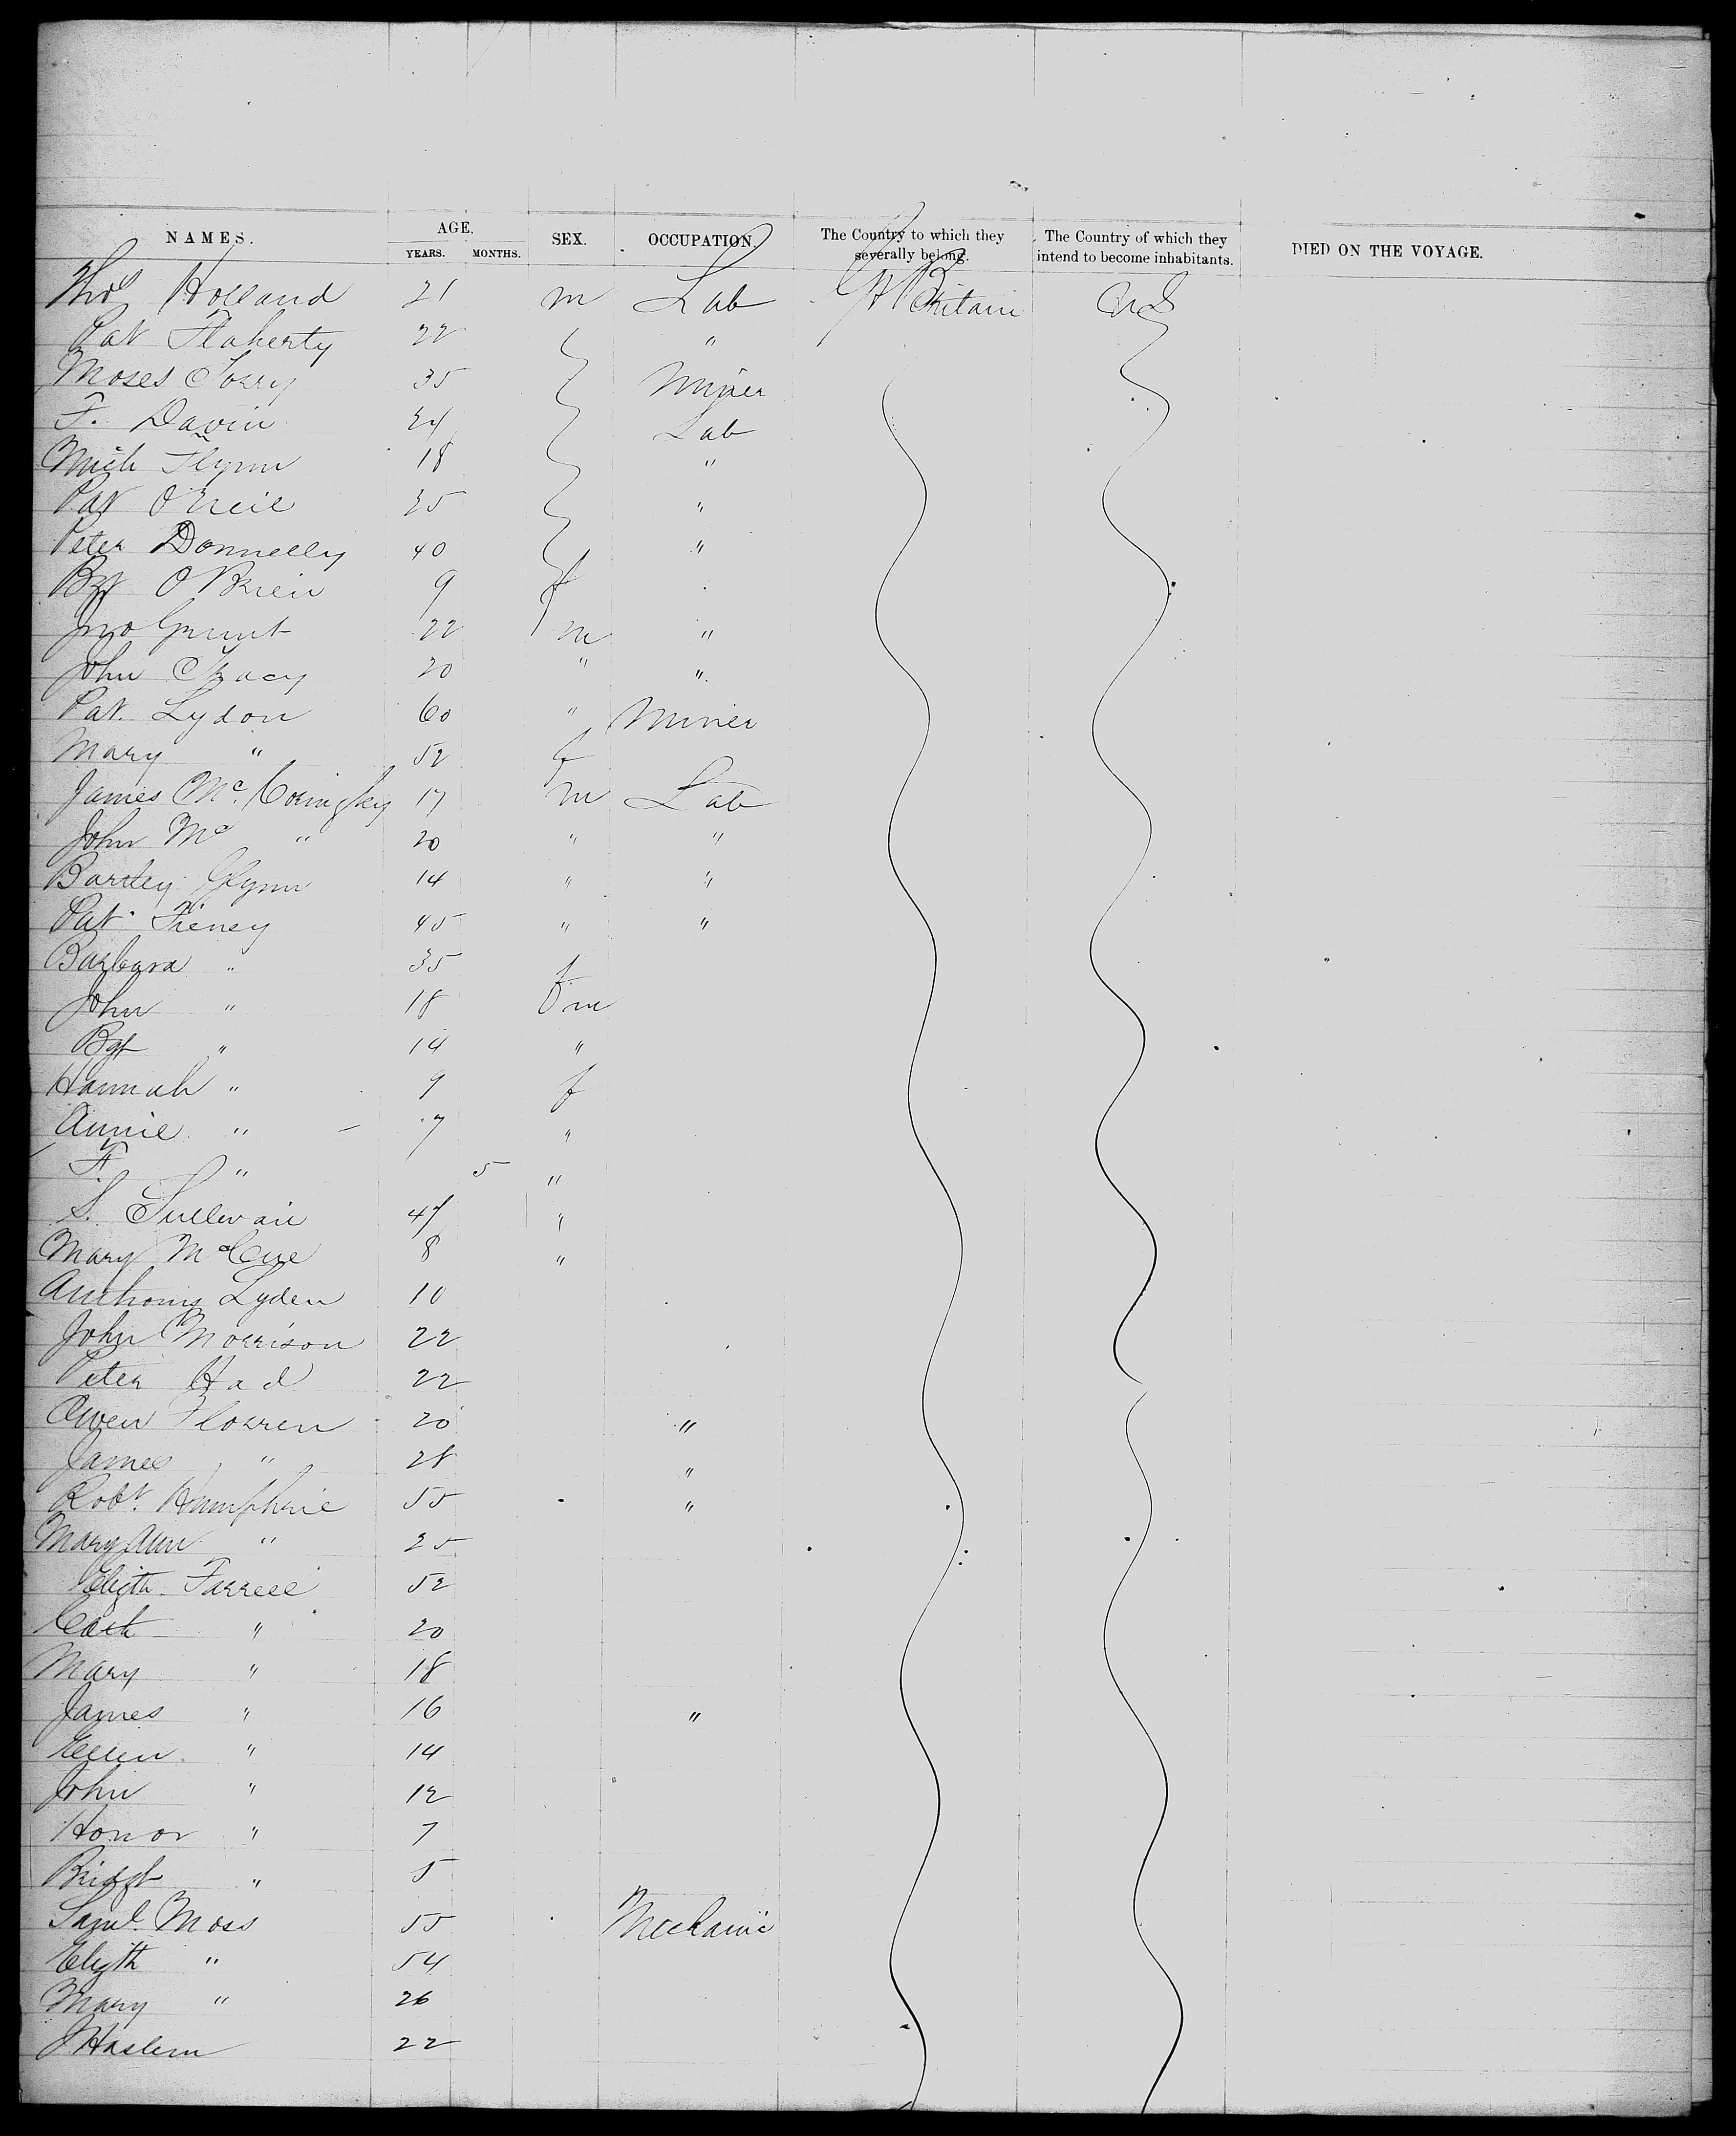 NAMES. AGE. YEARS. MONTHS. SEX. OCCUPATION. The Country to which they severally belong. The Country of which they intend to become inhabitants. DIED ON THE VOYAGE.
Thos Holland 21 m Lab Gt Britain US
Pat Flaherty 22 "
Moses 35 Miner
F. Davin 24 Lab
Mich Flynn 18 "
Pat O'Neil 35 "
Peter Donnelly 40 "
Bgt O'Brien 9 f
Jno Grunt 22 m "
John Tracy 20 " "
Pat. Lydon 60 " Miner
Mary " 52 f
James Mc 17 m Lab
John Mc " 20 " "
Bartley Glynn 14 " "
Pat Fieney 45 " "
Barbara " 35 f
John " 18 m
Bgt " 14 "
Hannah " 9 f
Annie " 7 "
F. " 5 "
S. Sullivan 47 "
Mary McCue 8 "
Anthony Lyden 10
John Morrison 22
Peter Had 22
Owen Florren 20 "
James " 28 "
Robt. Humphrie 55 "
Mary Ann " 25
Elizth. Farrell 52
Cath " 20
Mary " 18
James " 16 "
Ellen " 14
John " 12
Honor " 7
Bridgt " 5
Saml. Moss 55 Mechanic
Elizth " 54
Mary " 26
J Haslem 22